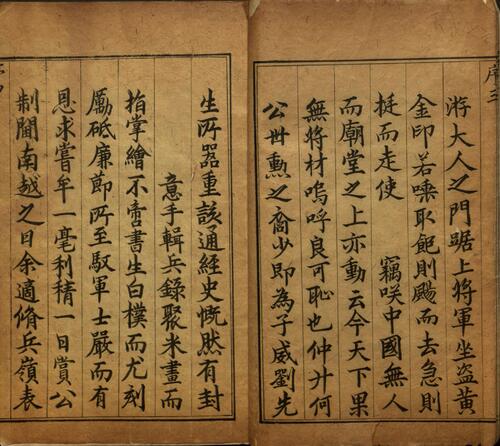 序三
游大人之門踞上將軍坐盜黃
金印若嗉取飽則颺而去急則
挺而走使 竊咲中國無人
而廟堂之上亦動云今天下果
無將材嗚呼良可恥也仲升何
公世勲之裔少即為子威劉先
生所器重該通經史慨然有封
意手輯兵錄聚米畫而
指掌繪不啻書生白樸而尤刻
勵砥廉節所至馭軍士嚴而有
恩求嘗牟一毫利精一日賞公
制閫南越之日余適脩兵嶺表